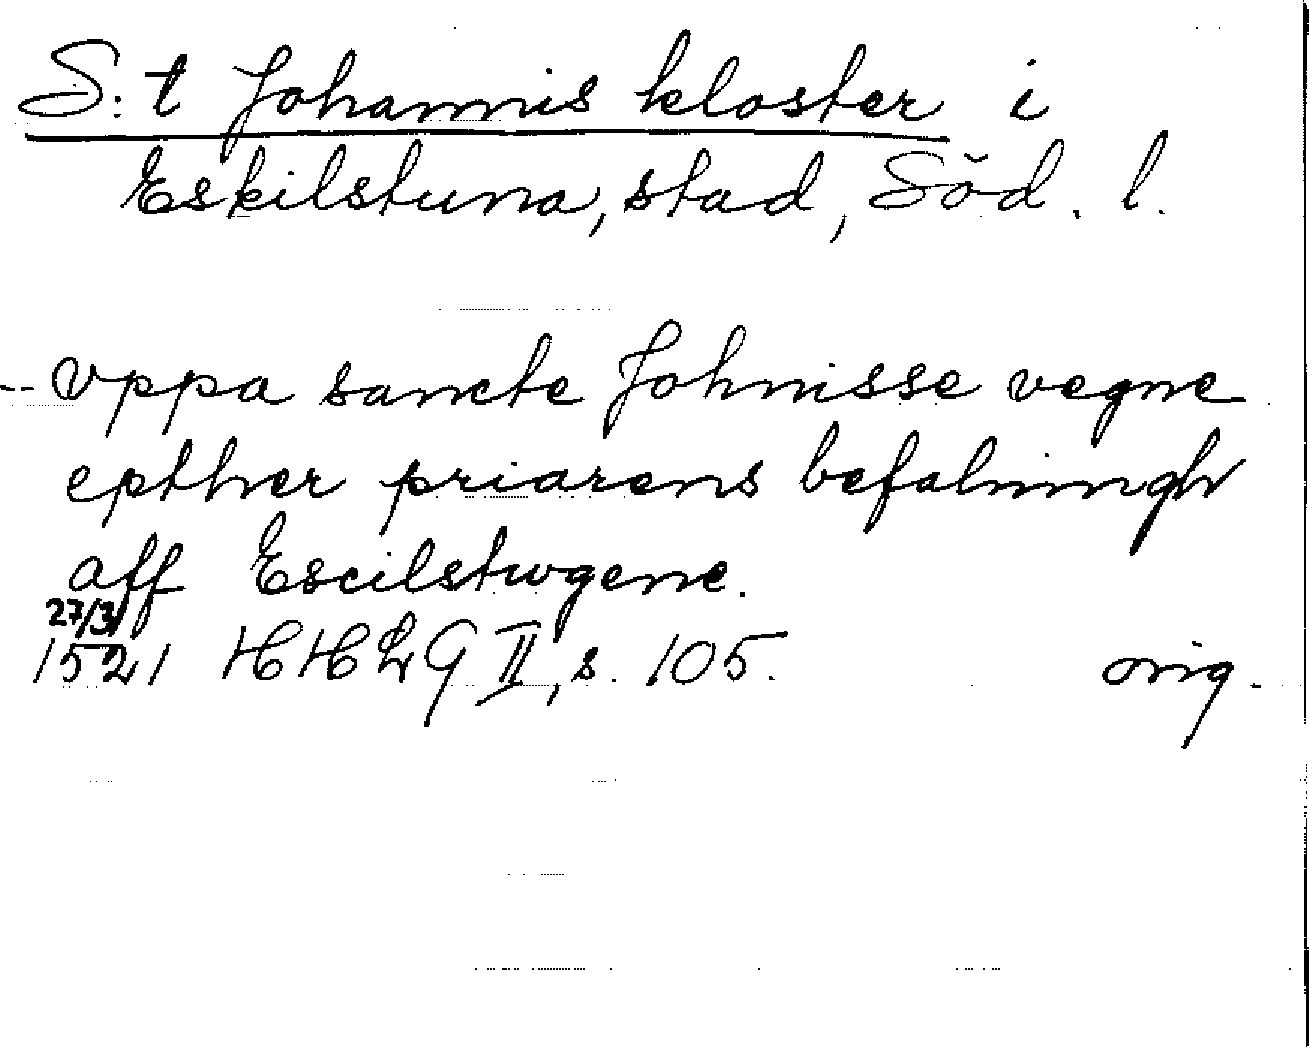 S:t Johannis kloster i
Eskilstuna, stad, Söd. l.
-- vppa sancte Johnisse vegne
epther priarens befalningh
aff Escilstwgene.
27/3
1521 HHLG II, s. 105. orig.